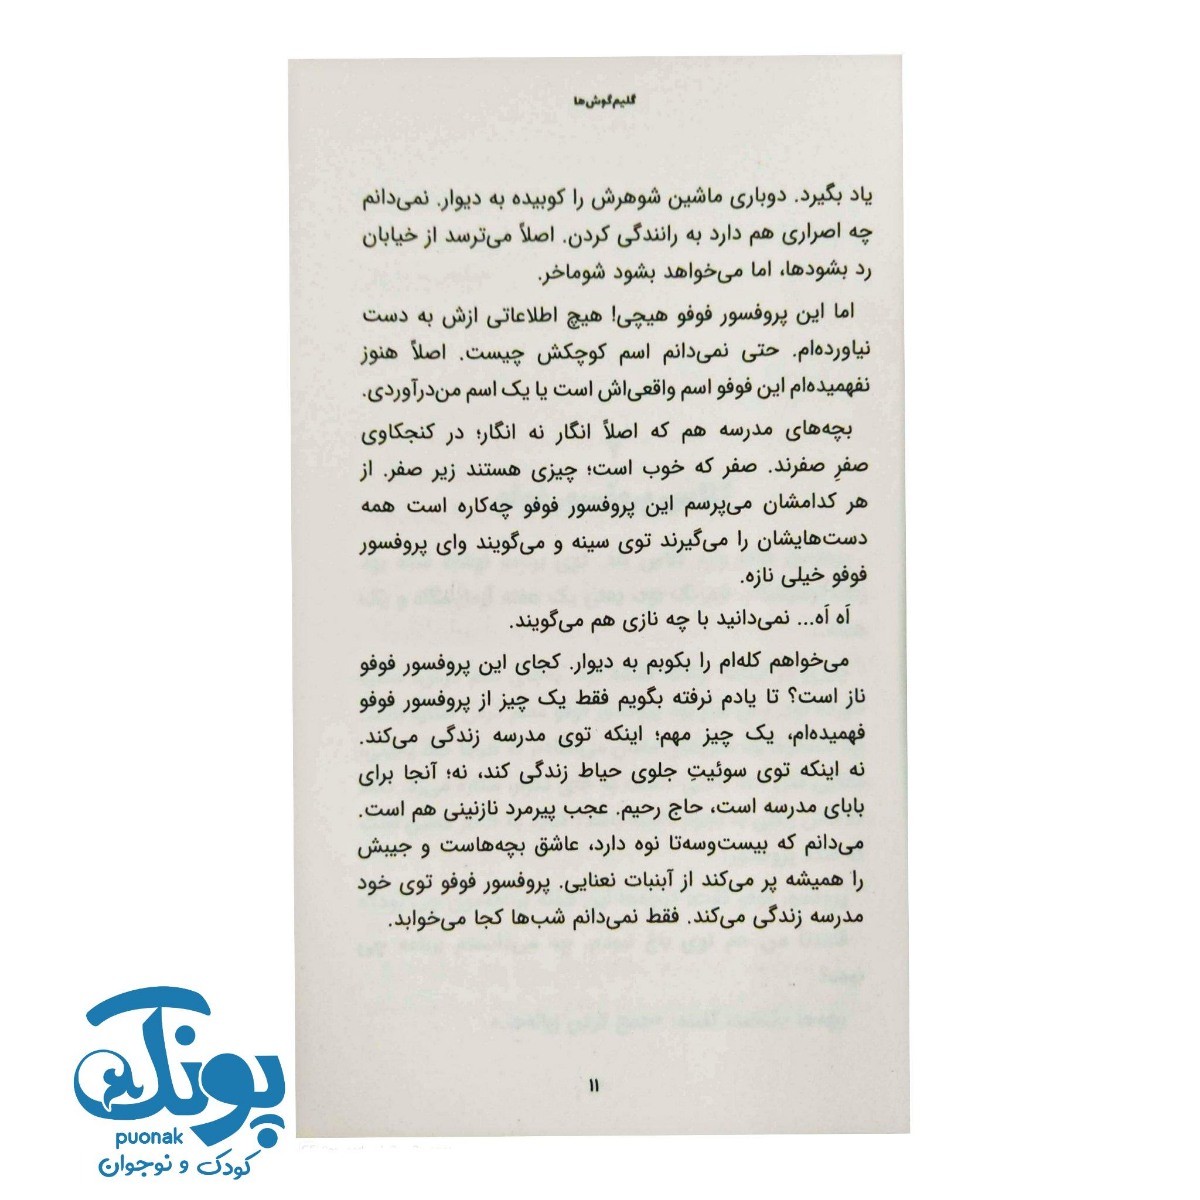 گلیم‌گوش‌ها
یاد بگیرد. دوباری ماشین شوهرش را کوبیده به دیوار. نمی‌دانم
چه اصراری هم دارد به رانندگی کردن. اصلاً می‌ترسد از خیابان
رد بشودها، اما می‌خواهد بشود شوماخر.
اما این پروفسور فوفو هیچی! هیچ اطلاعاتی ازش به دست
نیاورده‌ام. حتی نمی‌دانم اسم کوچکش چیست. اصلاً هنوز
نفهمیده‌ام این فوفو اسم واقعی‌اش است یا یک اسم من‌درآوردی.
بچه‌های مدرسه هم که اصلاً انگار نه انگار؛ در کنجکاوی
صفرِ صفرند. صفر که خوب است؛ چیزی هستند زیر صفر. از
هر کدامشان می‌پرسم این پروفسور فوفو چه‌کاره است همه
دست‌هایشان را می‌گیرند توی سینه و می‌گویند وای پروفسور
فوفو خیلی نازه.
اَه اَه... نمی‌دانید با چه نازی هم می‌گویند.
می‌خواهم کله‌ام را بکوبم به دیوار. کجای این پروفسور فوفو
ناز است؟ تا یادم نرفته بگویم فقط یک چیز از پروفسور فوفو
فهمیده‌ام، یک چیز مهم؛ اینکه توی مدرسه زندگی می‌کند.
نه اینکه توی سوئیتِ جلوی حیاط زندگی کند، نه؛ آنجا برای
بابای مدرسه است، حاج رحیم. عجب پیرمرد نازنینی هم است.
می‌دانم که بیست‌وسه‌تا نوه دارد، عاشق بچه‌هاست و جیبش
را همیشه پر می‌کند از آبنبات نعنایی. پروفسور فوفو توی خود
مدرسه زندگی می‌کند. فقط نمی‌دانم شب‌ها کجا می‌خوابد.
۱۱
پونک
puonak
کودک و نوجوان